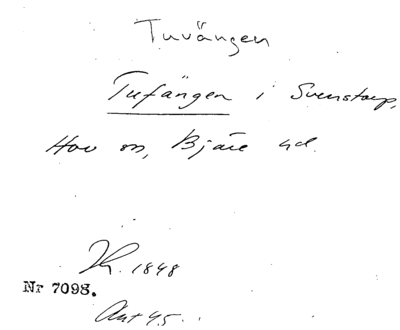 Tuvängen
Tufängen i Svenstorp,
Hov sn, Bjäre hd.
1848
Nr 7098.